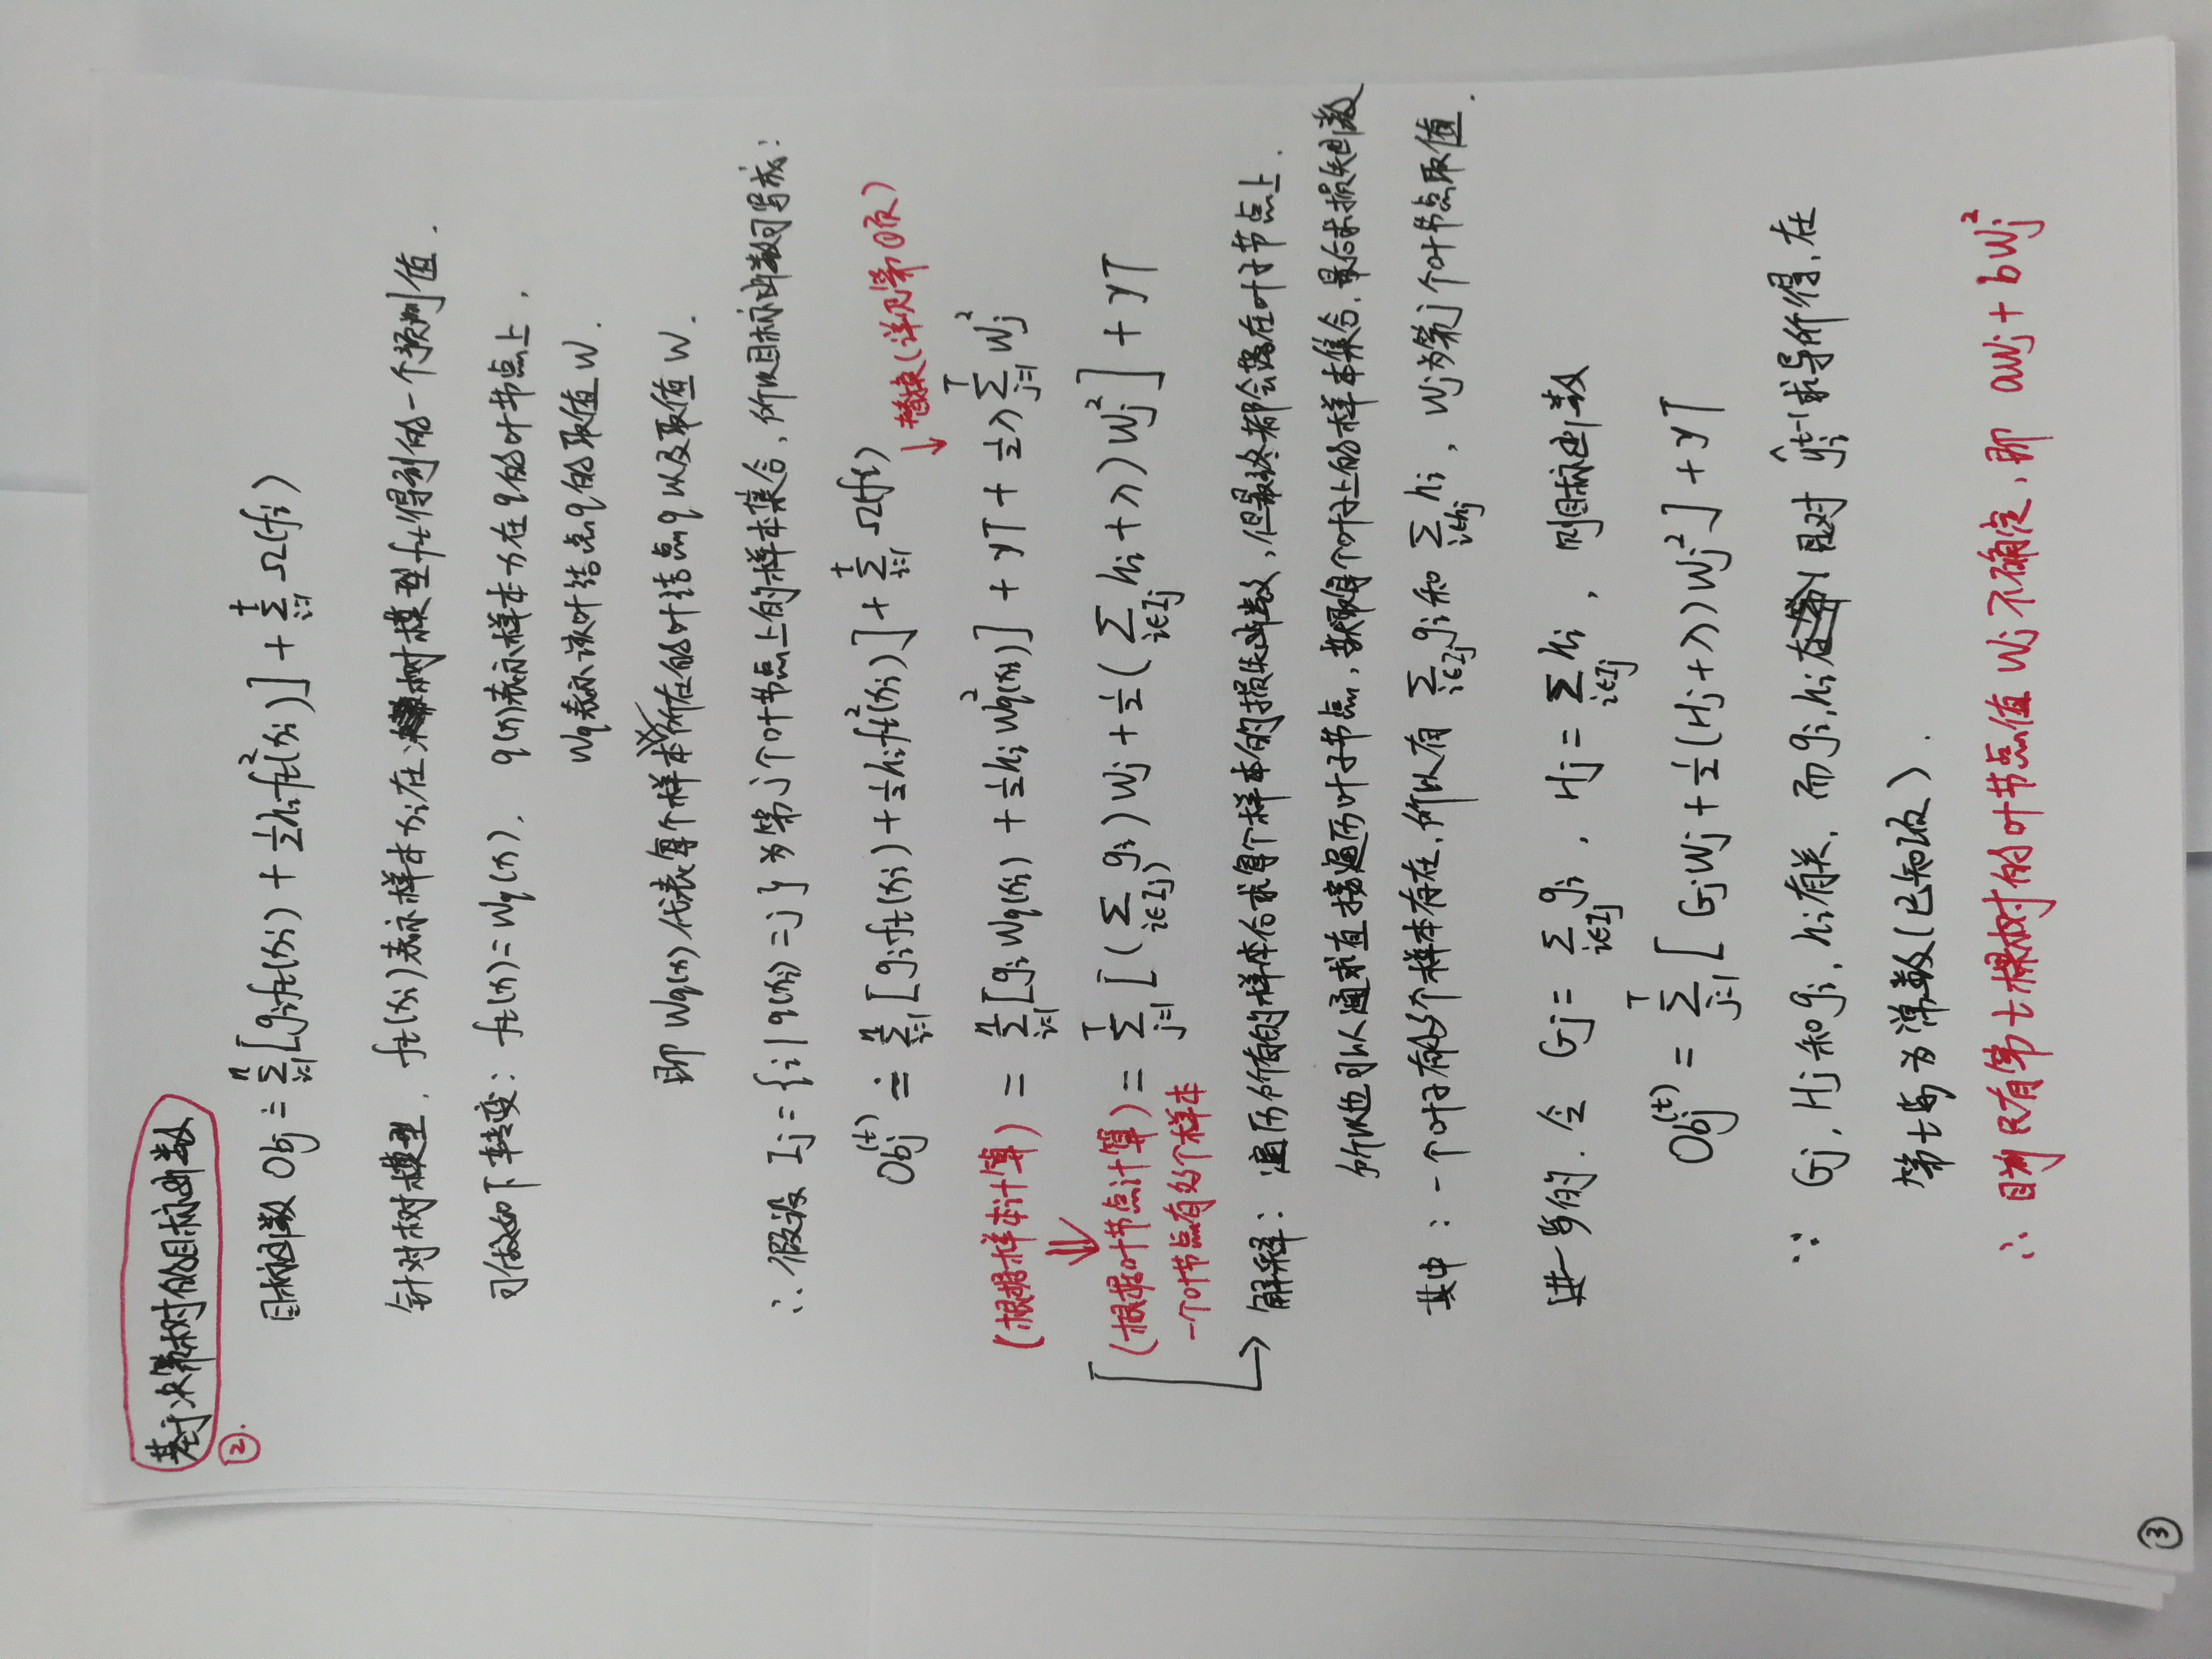 基于决策树的目标函数
②.
目标函数 Obj ≐ ∑_{i=1}^{n} [g_i f_t(x_i) + ½ h_i f_t²(x_i)] + ∑_{i=1}^{t} Ω(f_i)
针对树模型, f_t(x_i)表示样本x_i在树模型f_t得到的一个预测值.
可做如下转变: f_t(x) = W_q(x), q(x)表示样本x在q的叶节点上,
W_q表示该叶结点q的取值W.
即 W_q(x) 代表每个样本所在的叶结点q以及取值W.
∴ 假设 I_j = {i | q(x_i) = j} 为第j个叶节点上的样本集合, 所以目标函数可写成:
Obj^(t) ≐ ∑_{i=1}^{n} [g_i f_t(x_i) + ½ h_i f_t²(x_i)] + ∑_{i=1}^{t} Ω(f_i)
↓ 替换(详见第①页)
(根据样本计算) = ∑_{i=1}^{n} [g_i W_q(x_i) + ½ h_i W²_q(x_i)] + γT + ½ λ ∑_{j=1}^{T} W_j²
⇓
(根据叶节点计算) = ∑_{j=1}^{T} [(∑_{i∈I_j} g_i) W_j + ½ (∑_{i∈I_j} h_i + λ) W_j²] + γT
一个叶节点有多个样本
→ 解释: 遍历所有的样本后求每个样本的损失函数, 但最终都会落在叶子节点上.
所以也可以通求直接遍历叶子节点, 获取每个叶子上的样本集合, 最后求损失函数
其中: 一个叶子有多个样本存在, 所以有 ∑_{i∈I_j} g_i 和 ∑_{i∈h_j} h_i, W_j为第j个叶节点取值.
进一步的, 令 G_j = ∑_{i∈I_j} g_i, H_j = ∑_{i∈I_j} h_i, 则目标函数
Obj^(t) = ∑_{j=1}^{T} [G_j W_j + ½ (H_j + λ) W_j²] + γT
∵ G_j, H_j 和 g_i, h_i有关, 而g_i, h_i 是对 ŷ_i^{t-1} 求导所得, 在
第t步为常数(已知项).
∴ 目前只有第t棵树的叶节点值 W_j 不确定, 即 aW_j + bW_j²
③